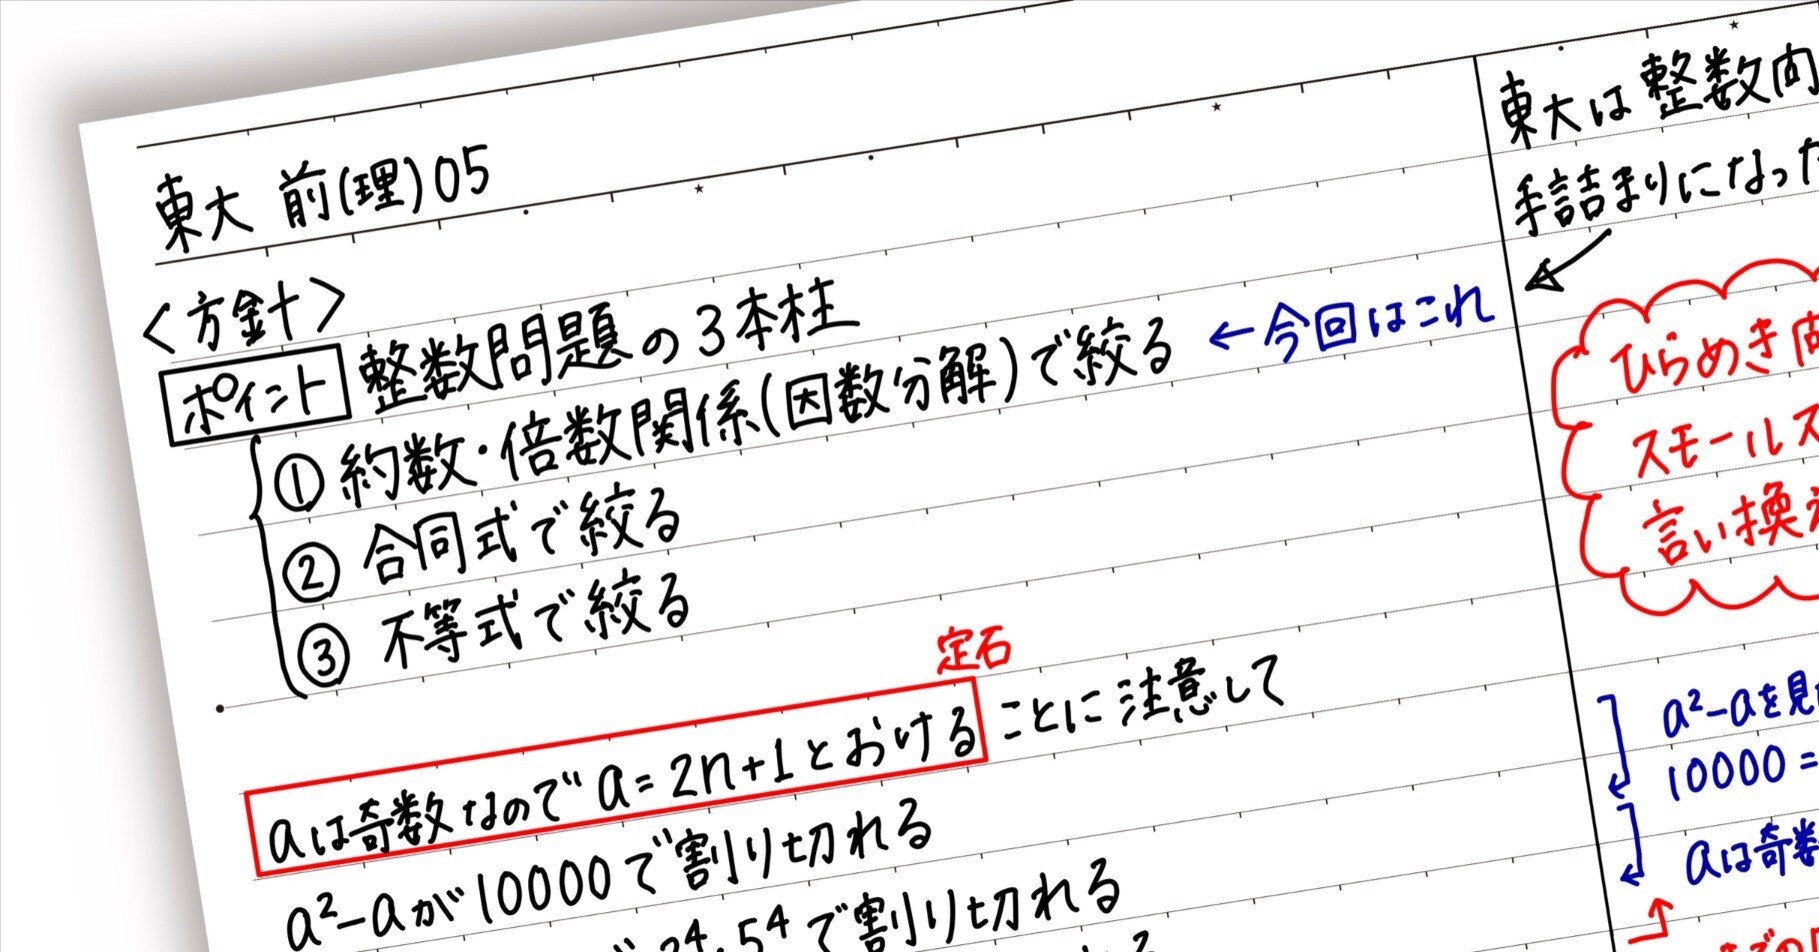 東大 前(理)05
<方針>
ポイント 整数問題の3本柱
① 約数・倍数関係(因数分解)で絞る ←今回はこれ
② 合同式で絞る
③ 不等式で絞る
定石
aは奇数なので a=2n+1とおける ことに注意して
a²-aが10000で割り切れる
2⁴・5⁴で割り切れる
東大は整数問
手詰まりになった
ひらめき
スモールス
言い換え
a²-aを見
10000=
aは奇数